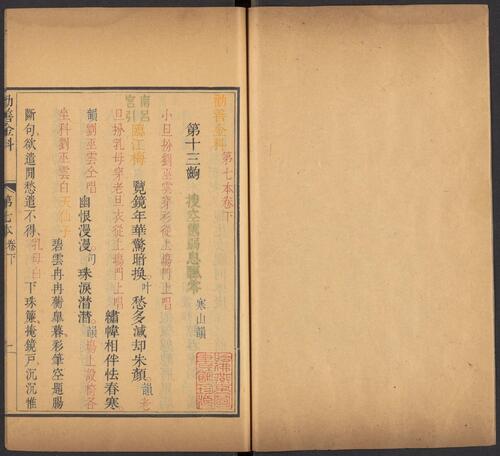 勸善金科 第七本卷下
第十三齣 搜空篋弱息飄零 寒山韻
小旦扮劉巫雲穿衫從上場門上唱
南呂宮引 臨江梅 覽鏡年華驚暗換叶 愁多減却朱顏韻老
旦扮乳母穿老旦衣從上場門上唱 繡幃相伴怯春寒
韻劉巫雲仝唱 幽恨漫漫句 珠淚潸潸韻場上設椅各
坐科劉巫雲白 天仙子 碧雲冉冉蘅皋暮彩筆空題腸
斷句欲遣閒愁遣不得 乳母白 下珠簾掩鏡戶沉沉惟
勸善金科 第七本卷下 一